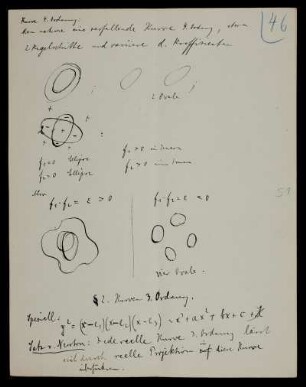 46
Kurve 4. Ordnung.
Man nehme eine zerfallende Kurve 4. Ordnung, etwa
2 Kegelschnitte und variiere d. Koeffizienten
2 Ovale.
+
+ - +
- + -
+
f₁ = 0 Ellipse
f₂ = 0 Ellipse
f₁ > 0 im Innern
f₂ > 0 im Innern
f₁·f₂ = ε > 0
f₁·f₂ = ε < 0
vier Ovale.
§ 2. Kurven 3. Ordnung.
Speziell: y² = (x-e₁)(x-e₂)(x-e₃) = x³+ax²+bx+c
Satz v. Newton: Jede reelle Kurve 3. Ordnung lässt
sich durch reelle Projektion auf diese Kurve